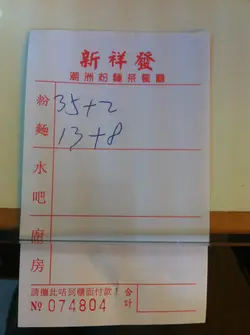 新祥發
潮洲粉麵茶餐廳
粉麵
35+2
13+8
水吧
廚房
請攜此咭到樓面付款!
合計
№ 074804